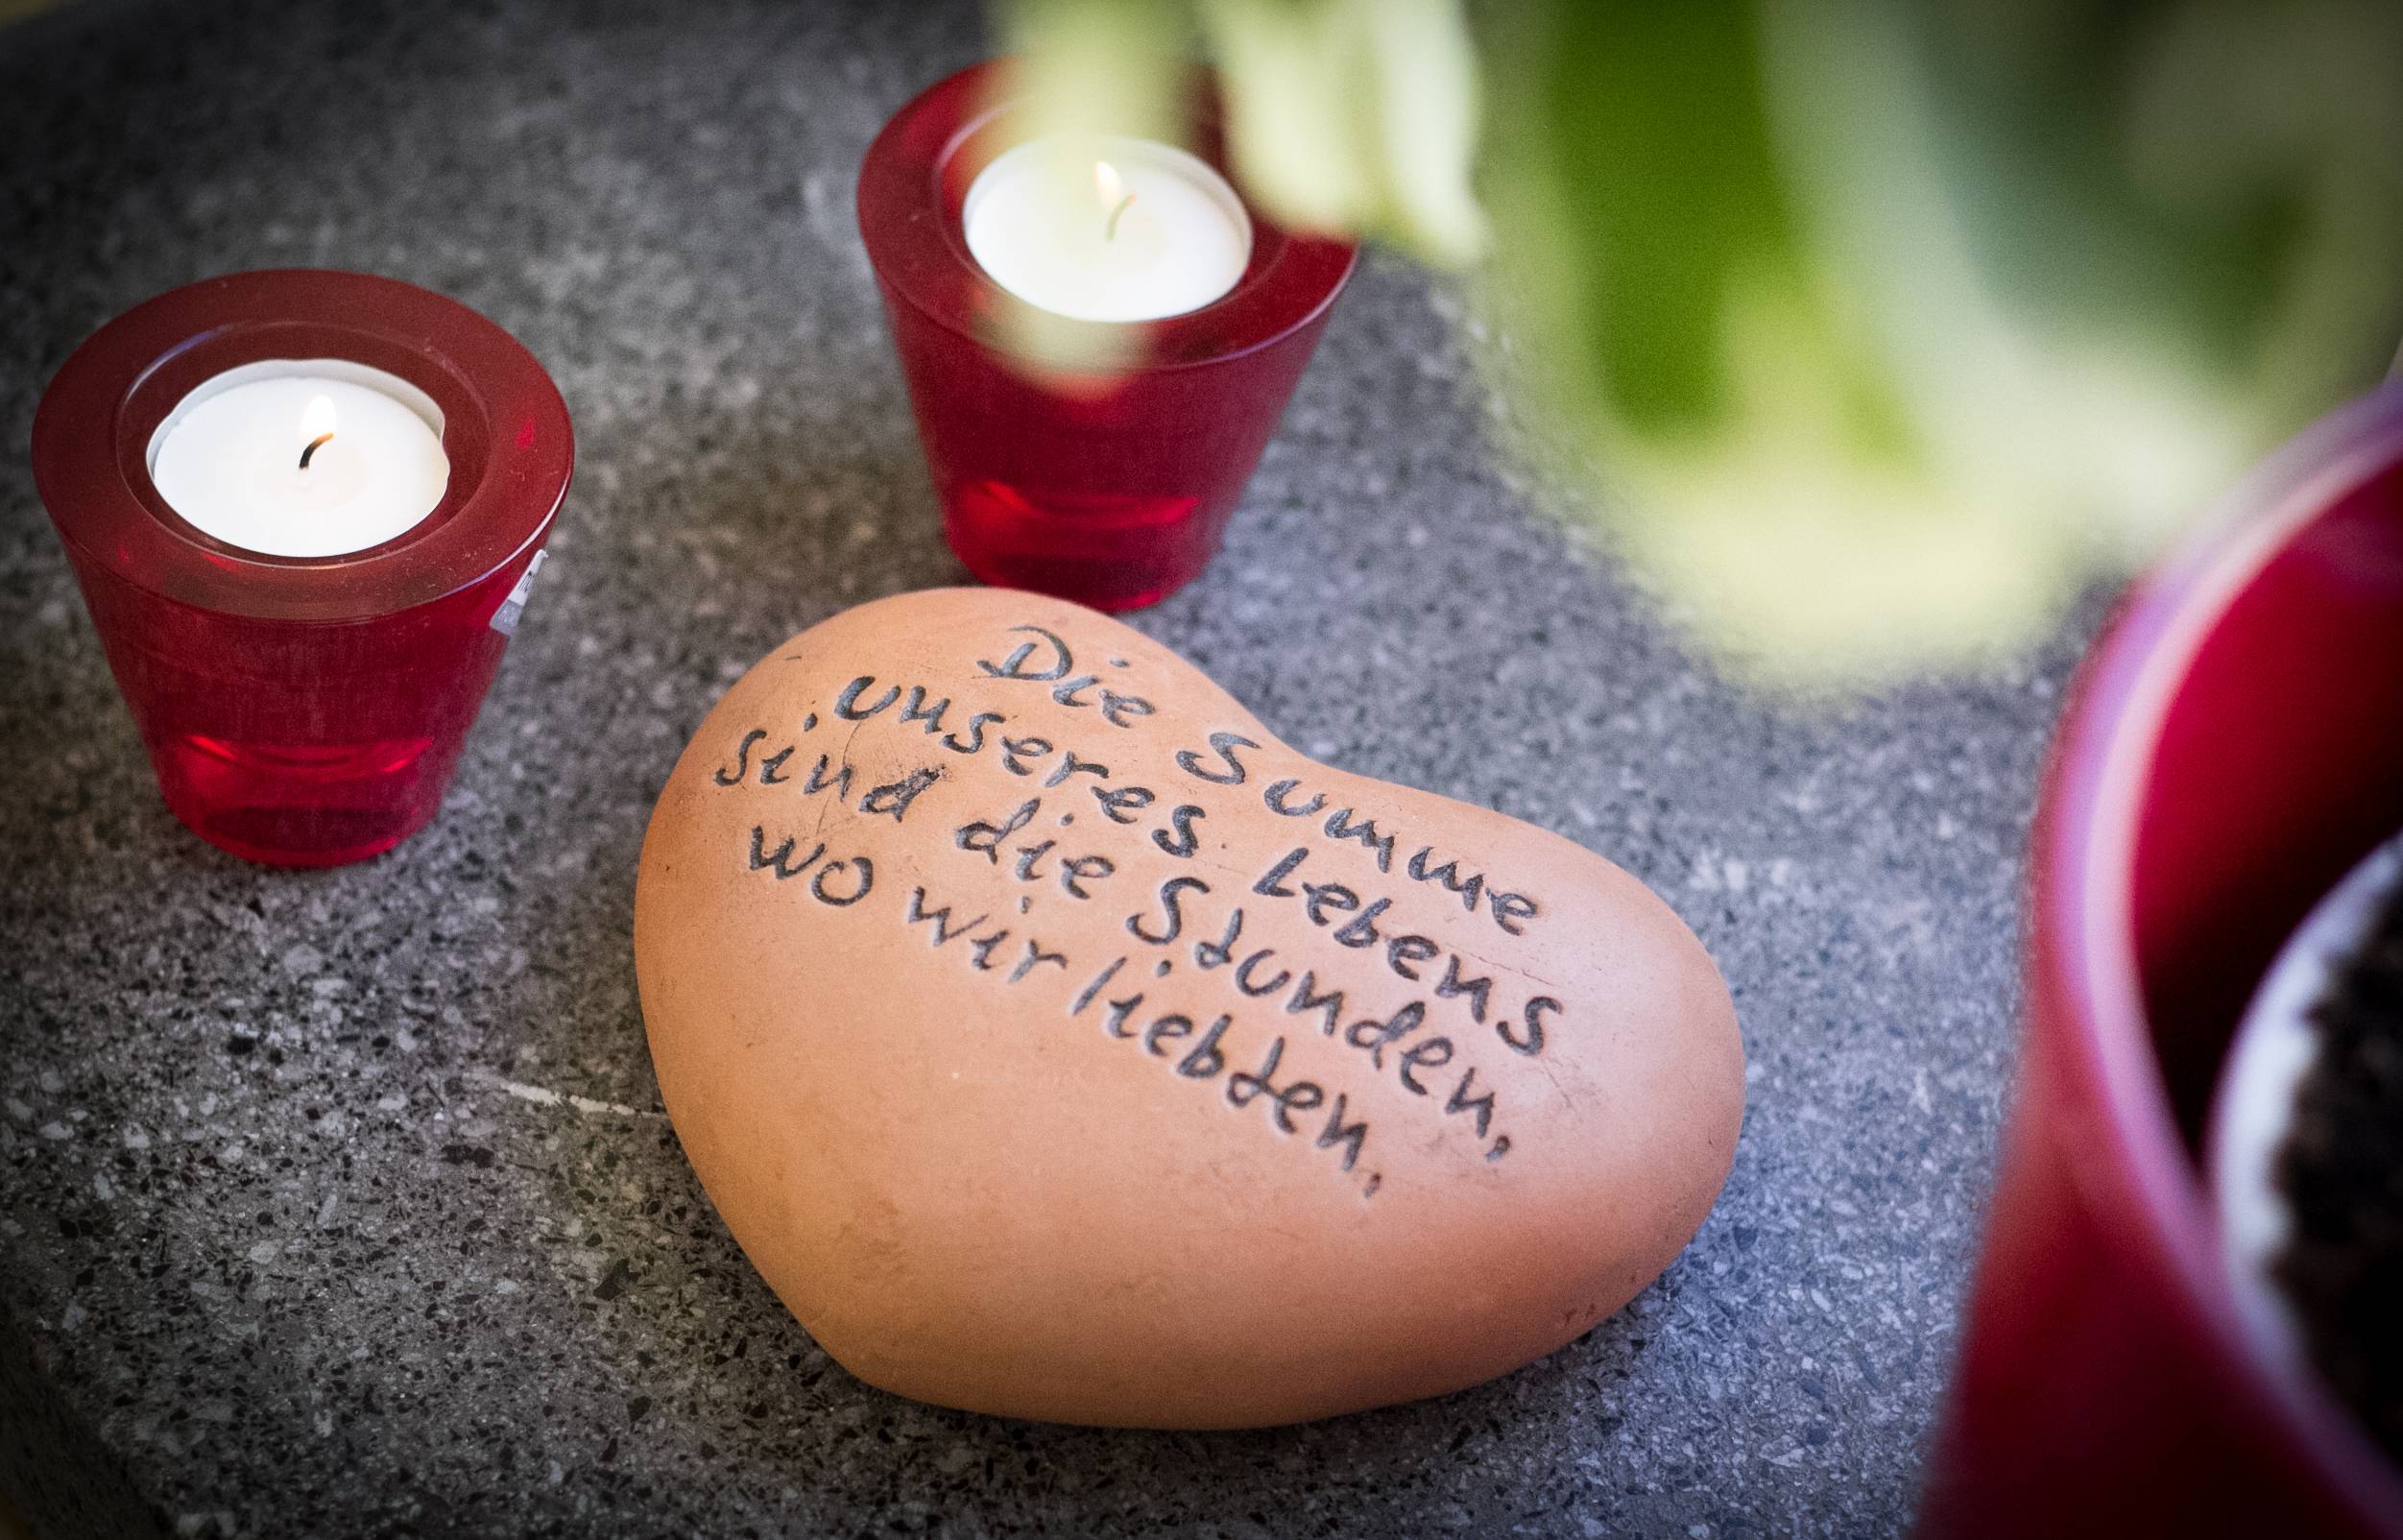 Die Summe
unseres Lebens
sind die Stunden,
wo wir liebten.